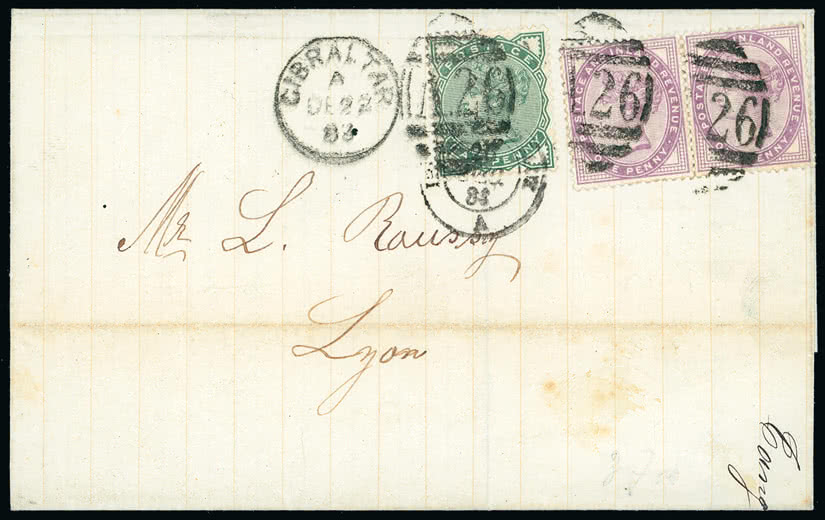 GIBRALTAR
A
DE 22
83
POSTAGE
26
PENNY
83
A
POSTAGE AND INLAND REVENUE
26
ONE PENNY
POSTAGE AND INLAND REVENUE
26
ONE PENNY
Mr L. Roussy
Lyon